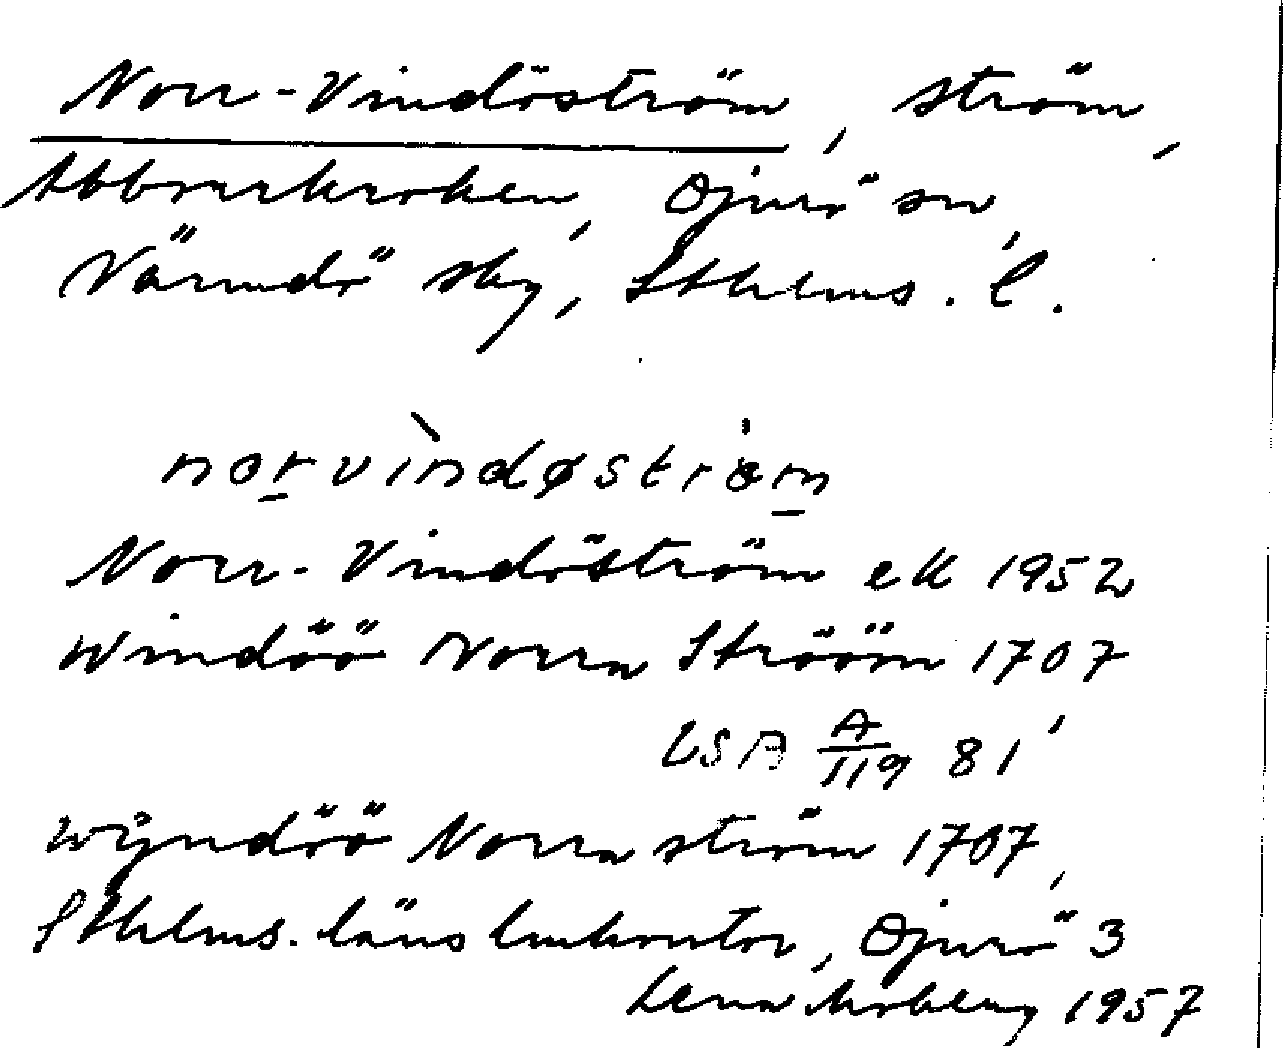 Norr-Vindöström, ström,
Abborrkroken, Djurö sn,
Värmdö sky, Sthlms. l.
norvìndøstrøm
Norr-Vindöström ek 1952
Windöö Norra Strööm 1707,
LSA A/119 81
Wÿndöö Norra ström 1707,
Sthlms. läns lmkontor, Djurö 3
Lena Moberg 1957